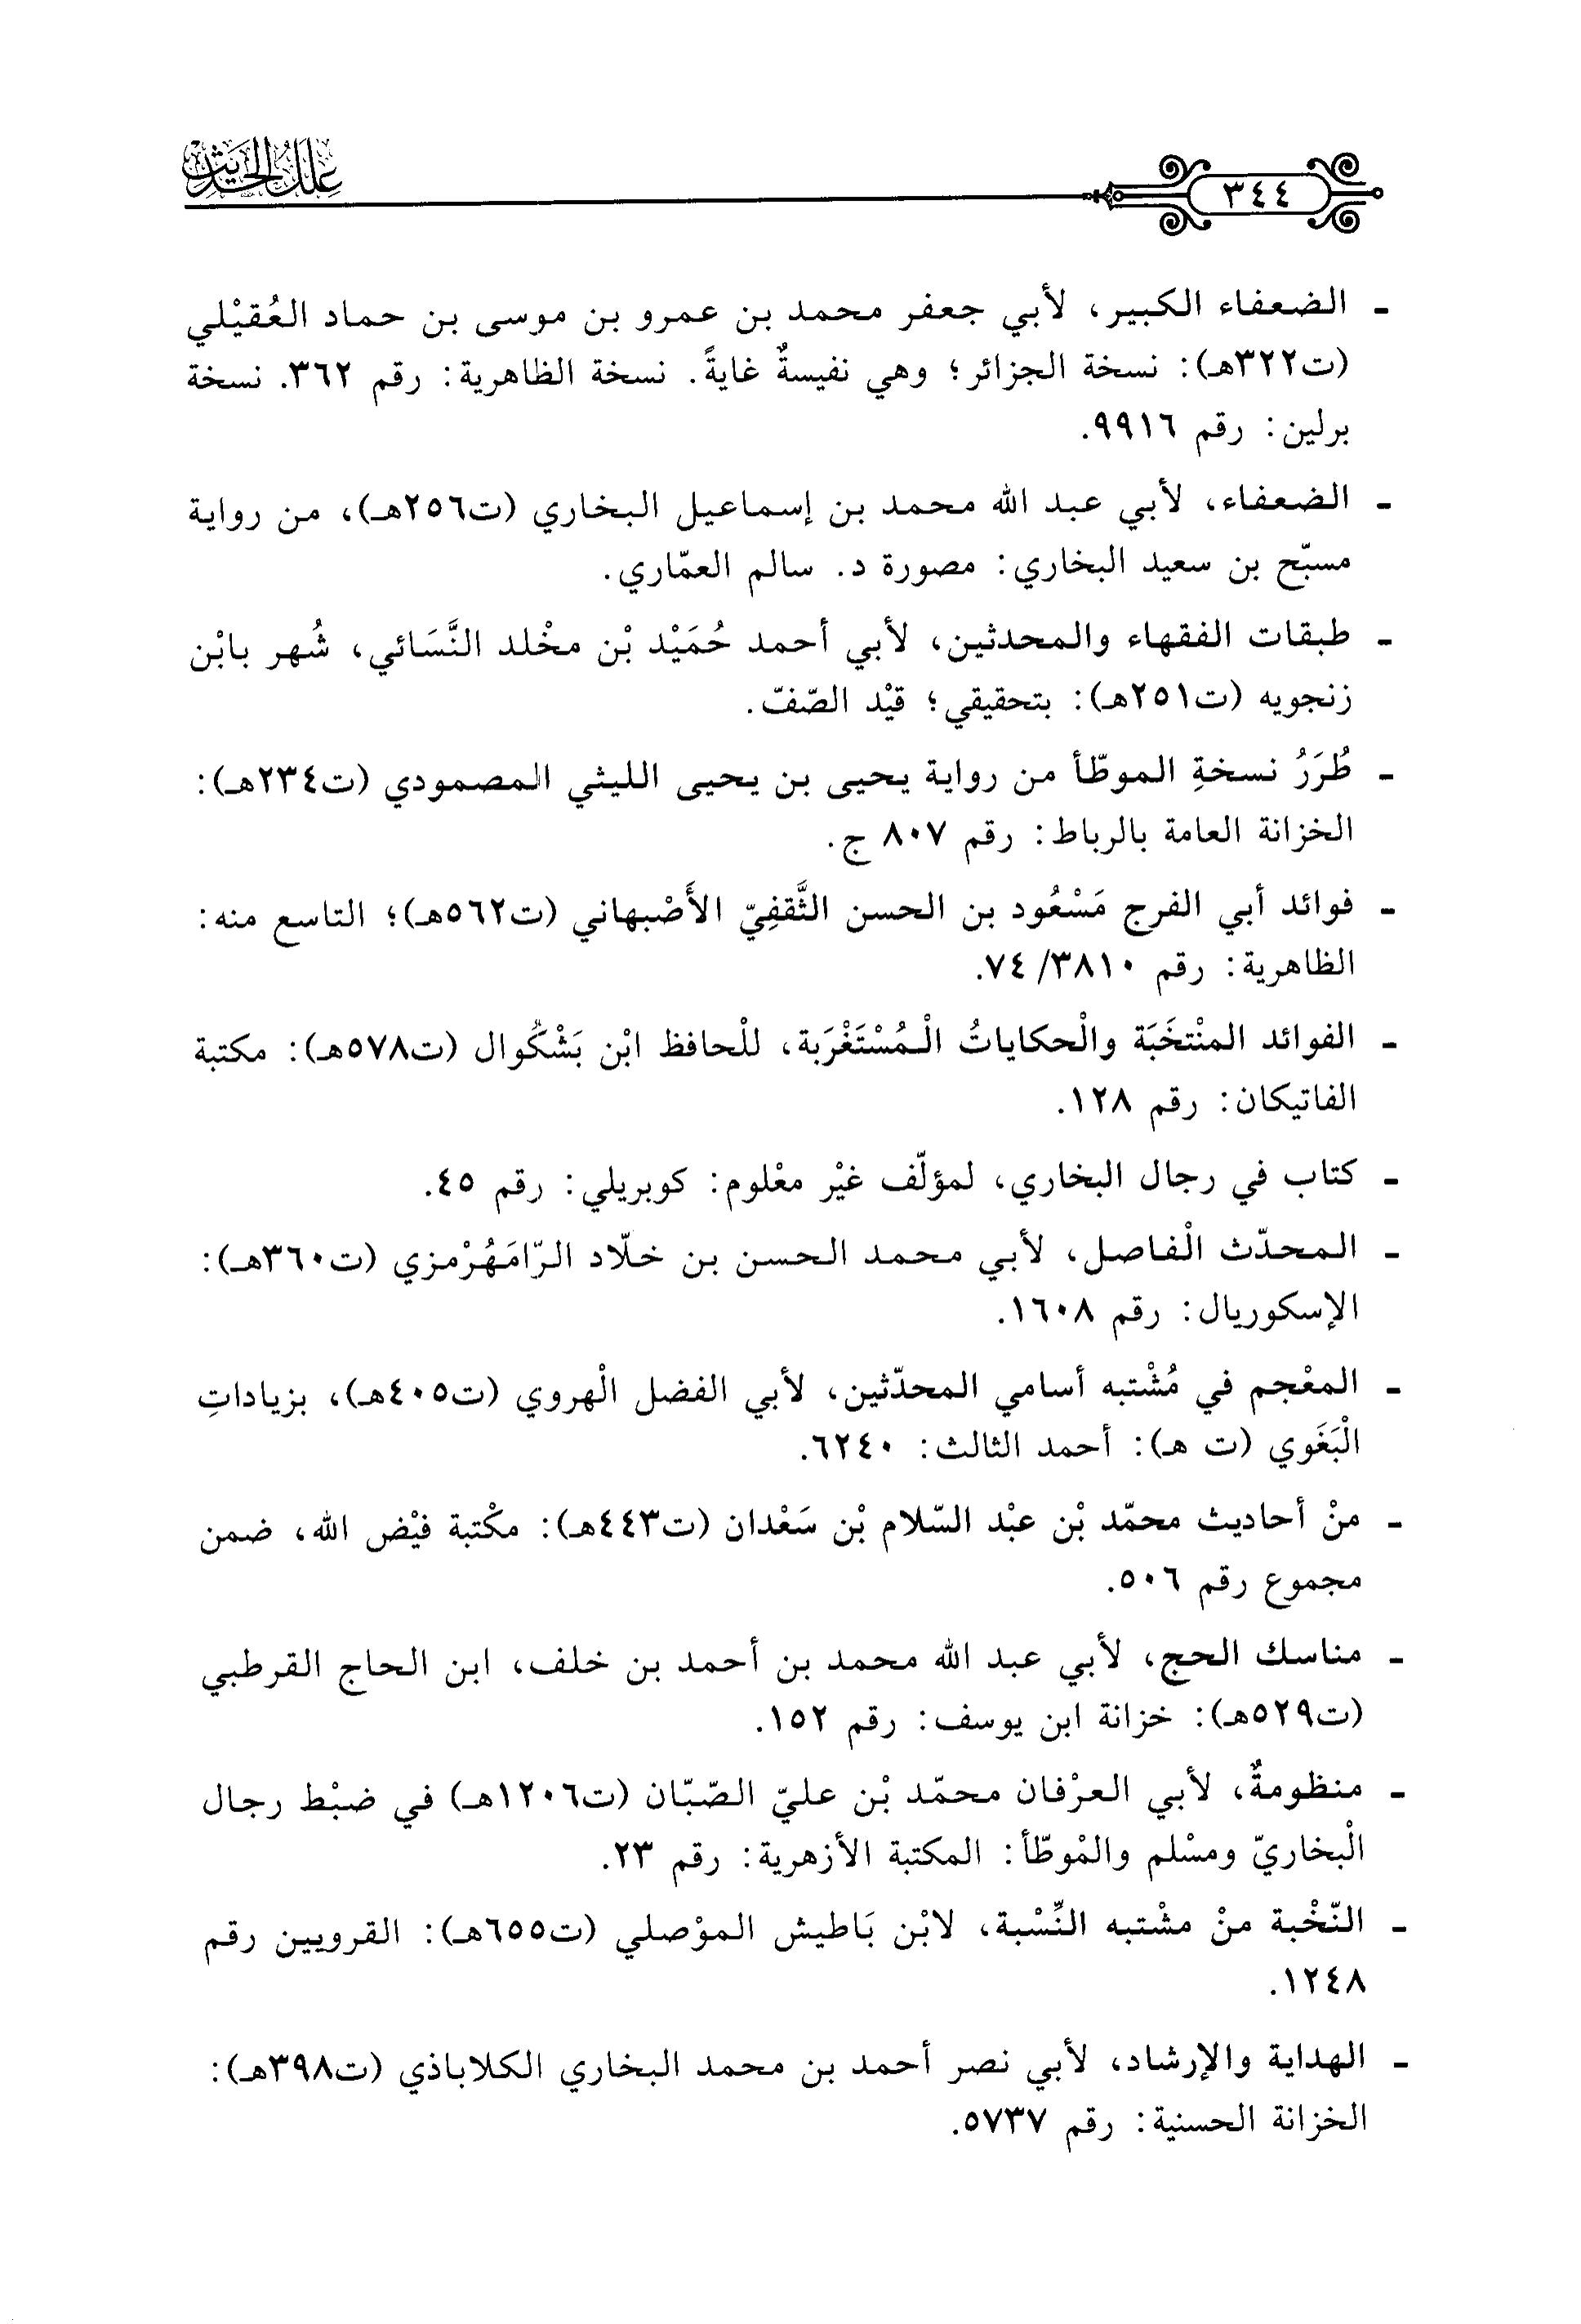 ٣٤٤
علل الحديث
- الضعفاء الكبير، لأبي جعفر محمد بن عمرو بن موسى بن حماد العُقيْلي
(ت٣٢٢هـ): نسخة الجزائر؛ وهي نفيسةٌ غايةً. نسخة الظاهرية: رقم ٣٦٢. نسخة
برلين: رقم ٩٩١٦.
- الضعفاء، لأبي عبد الله محمد بن إسماعيل البخاري (ت٢٥٦هـ)، من رواية
مسبّح بن سعيد البخاري: مصورة د. سالم العمّاري.
- طبقات الفقهاء والمحدثين، لأبي أحمد حُمَيْد بْن مخْلد النَّسَائي، شُهر بابْن
زنجويه (ت٢٥١هـ): بتحقيقي؛ قيْد الصّفّ.
- طُرَرُ نسخةِ الموطّأ من رواية يحيى بن يحيى الليثي المصمودي (ت٢٣٤هـ):
الخزانة العامة بالرباط: رقم ٨٠٧ ج.
- فوائد أبي الفرج مَسْعُود بن الحسن الثَّقفِيّ الأَصْبهاني (ت٥٦٢هـ)؛ التاسع منه:
الظاهرية: رقم ٣٨١٠/ ٧٤.
- الفوائد المنْتخَبَة والْحكاياتُ الْمُسْتَغْرَبة، للْحافظ ابْن بَشْكُوال (ت٥٧٨هـ): مكتبة
الفاتيكان: رقم ١٢٨.
- كتاب في رجال البخاري، لمؤلّف غيْر معْلوم: كوبريلي: رقم ٤٥.
- المحدّث الْفاصل، لأبي محمد الحسن بن خلّاد الرّامَهُرْمزي (ت٣٦٠هـ):
الإسكوريال: رقم ١٦٠٨.
- المعْجم في مُشْتبه أسامي المحدّثين، لأبي الفضل الْهروي (ت٤٠٥هـ)، بزياداتِ
الْبَغَوي (ت هـ): أحمد الثالث: ٦٢٤٠.
- منْ أحاديث محمّد بْن عبْد السّلام بْن سَعْدان (ت٤٤٣هـ): مكْتبة فيْض الله، ضمن
مجموع رقم ٥٠٦.
- مناسك الحج، لأبي عبد الله محمد بن أحمد بن خلف، ابن الحاج القرطبي
(ت٥٢٩هـ): خزانة ابن يوسف: رقم ١٥٢.
- منظومةٌ، لأبي العرْفان محمّد بْن عليّ الصّبّان (ت١٢٠٦هـ) في ضبْط رجال
الْبخاريّ ومسْلم والمْوطّأ: المكتبة الأزهرية: رقم ٢٣.
- النّخْبة منْ مشْتبه النِّسْبة، لابْن بَاطيش الموْصلي (ت٦٥٥هـ): القرويين رقم
١٢٤٨.
- الهداية والإرشاد، لأبي نصر أحمد بن محمد البخاري الكلاباذي (ت٣٩٨هـ):
الخزانة الحسنية: رقم ٥٧٣٧.